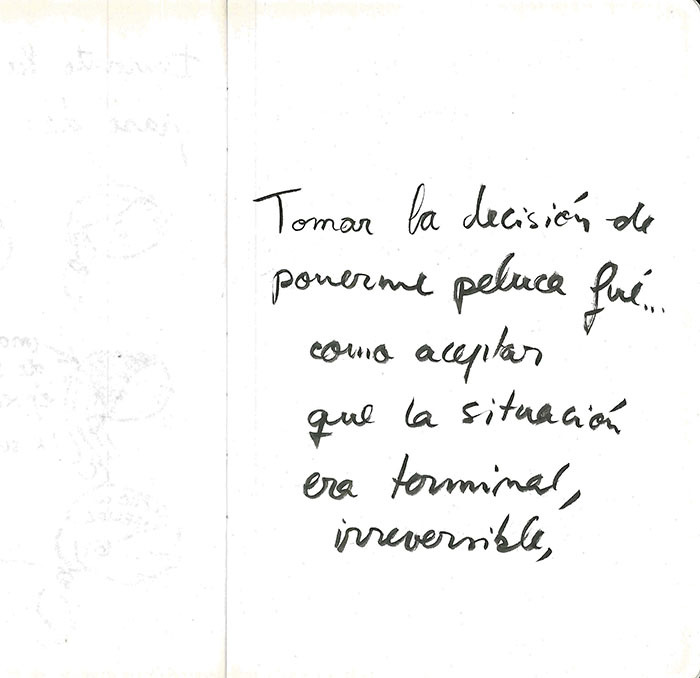 Tomar la decisión de
ponerme peluca fué...
como aceptar
que la situación
era terminal,
irreversible,